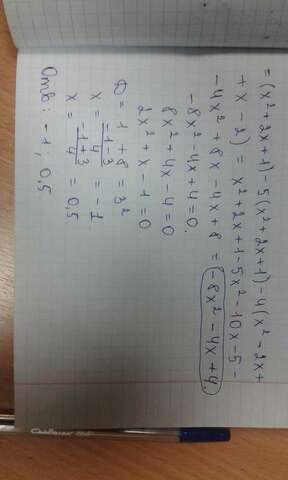 = (x² + 2x + 1) - 5(x² + 2x + 1) - 4(x² - 2x +
+ x - 2) = x² + 2x + 1 - 5x² - 10x - 5 -
- 4x² + 8x - 4x + 8 = -8x² - 4x + 4.
-8x² - 4x + 4 = 0.
8x² + 4x - 4 = 0
2x² + x - 1 = 0
D = 1 + 8 = 3²
x = -1-3/4 = -1
x = -1+3/4 = 0,5
Отв: -1; 0,5